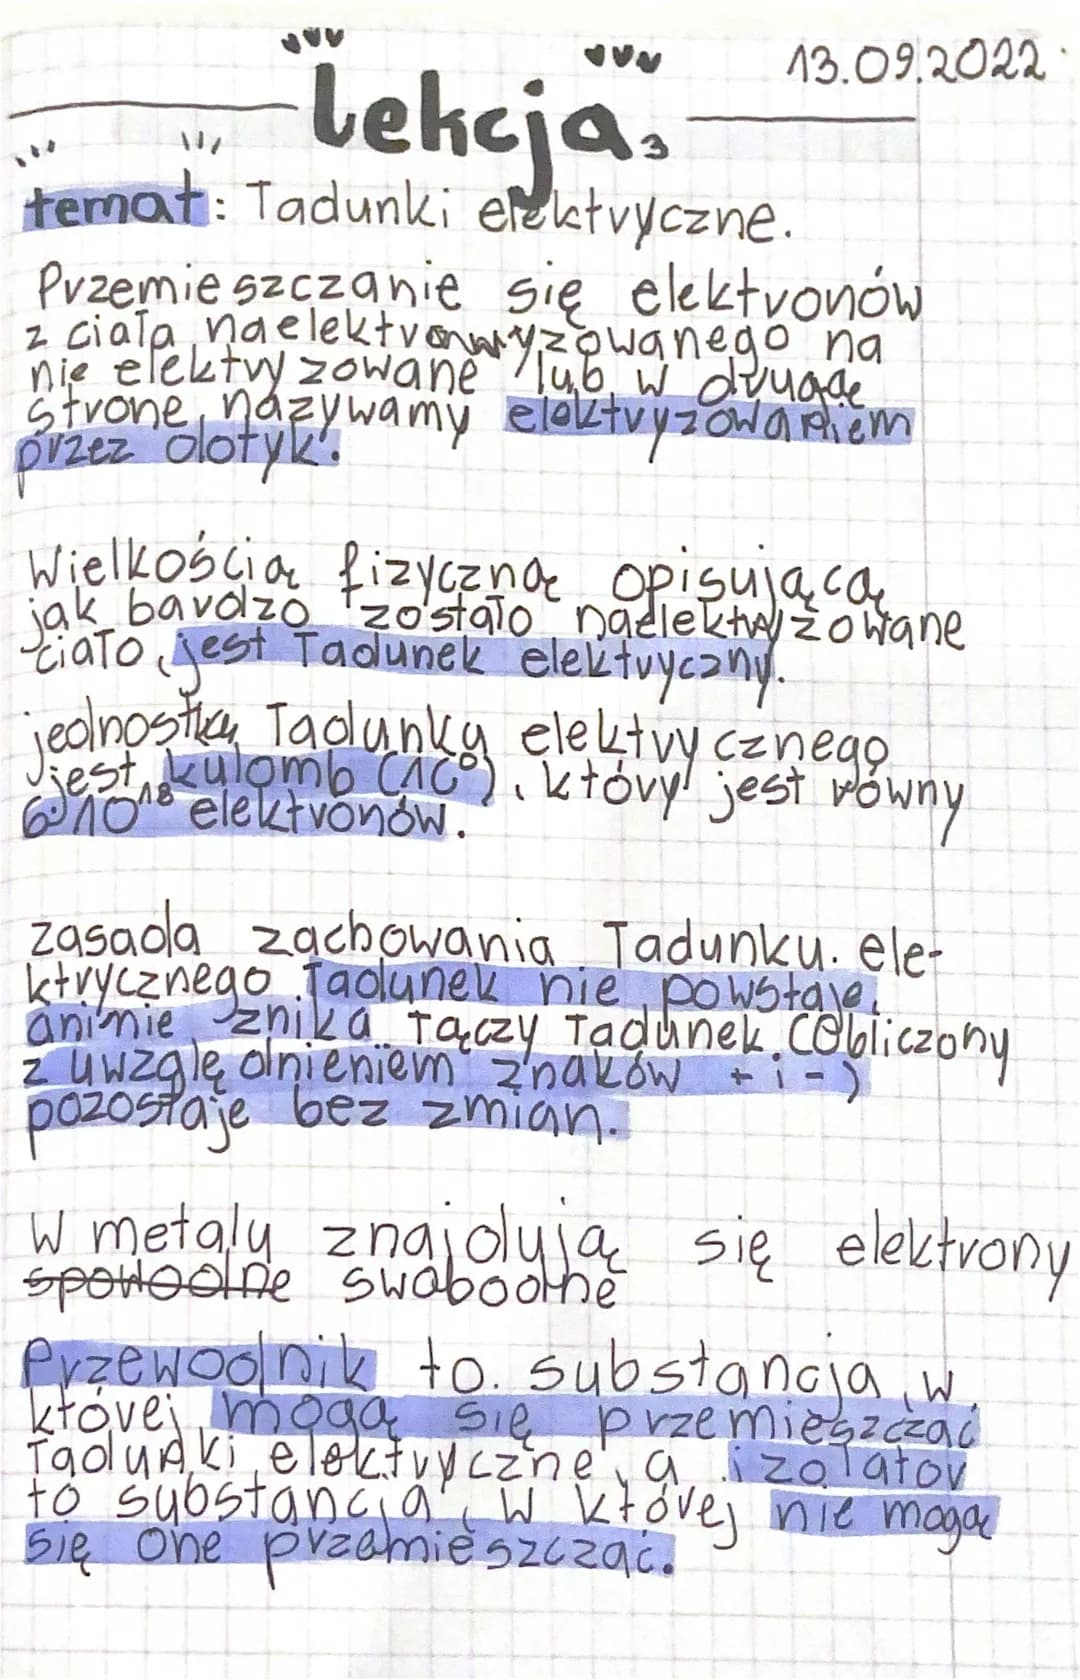 13.09.2022
Lekcja 3
temat: Ładunki elektryczne.
Przemieszczanie się elektronów
z ciała naelektronwyzowanego na
nie elektryzowane lub w drugąe
stronę nazywamy elektryzowaniem
przez dotyk.
Wielkością fizyczną opisującą,
jak bardzo zostało naelektryzowane
ciało, jest ładunek elektryczny.
jednostką ładunku elektrycznego
jest kulomb (1C), który jest równy
6·10¹⁸ elektronów.
zasada zachowania ładunku. ele-
ktrycznego ładunek nie powstaje,
ani nie znika łączy ładunek. (Obliczony
z uwzględnieniem znaków + i -)
pozostaje bez zmian.
W metalu znajdują się elektrony
swobodne
Przewodnik to. substancja, w
której mogą się przemieszczać
ładunki elektryczne, a izolator
to substancja, w której nie mogą
się one przemieszczać.